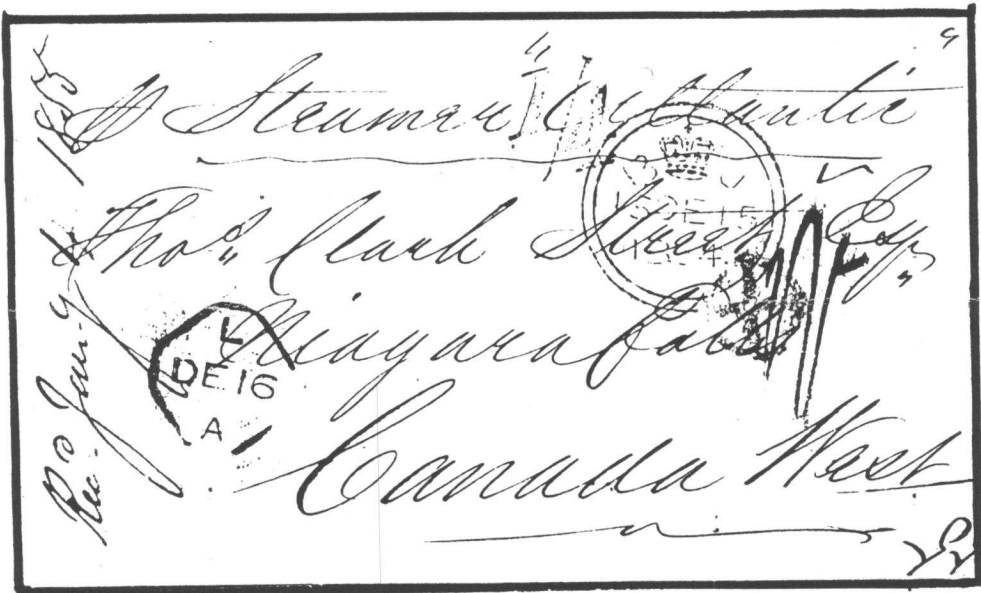 P Steamer Atlantic
Thos. Clark Street Esq.
Niagara Falls
Canada West
L
DE 16
A
15 DE 15
Rec. Jany 1855